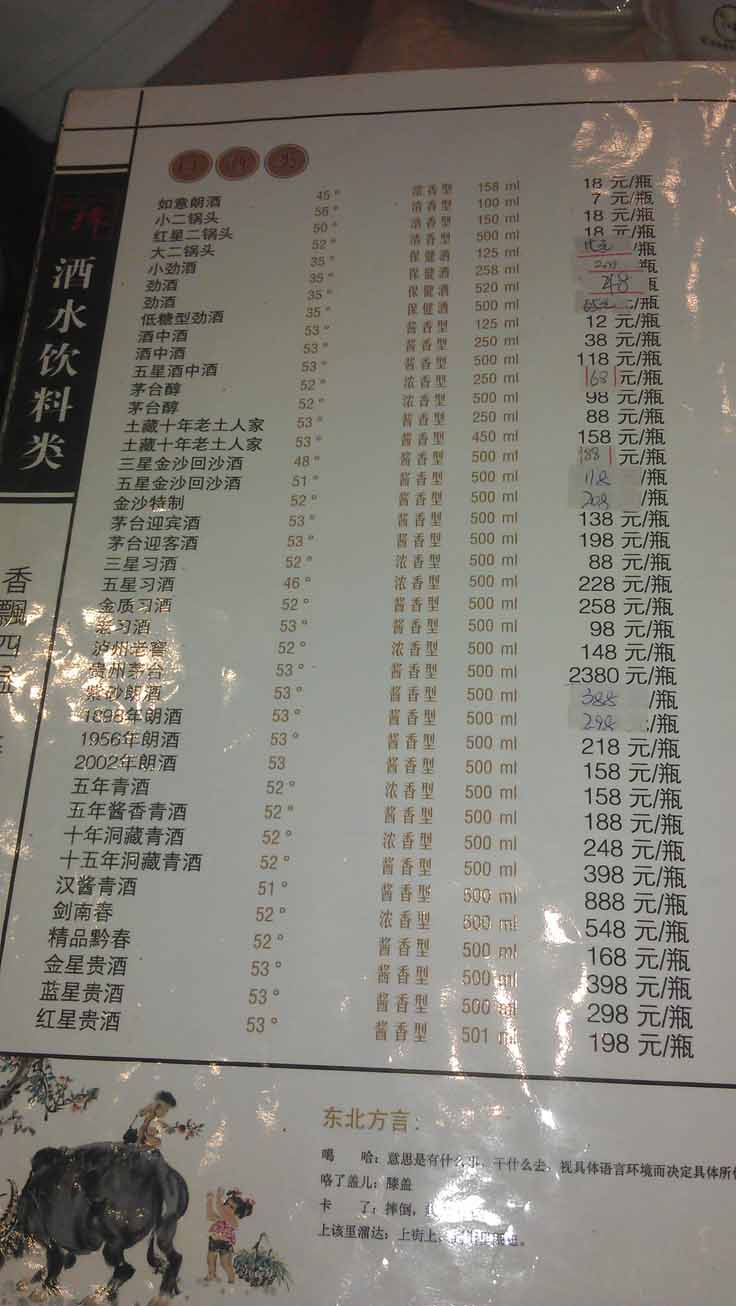 酒水饮料类
如意朗酒 45° 浓香型 158 ml 18 元/瓶
小二锅头 56° 清香型 100 ml 7 元/瓶
红星二锅头 50° 清香型 150 ml 18 元/瓶
大二锅头 52° 清香型 500 ml 18 元/瓶
小劲酒 35° 保健酒 125 ml /瓶
劲酒 35° 保健酒 258 ml 瓶
劲酒 35° 保健酒 520 ml 瓶
低糖型劲酒 35° 保健酒 500 ml /瓶
酒中酒 53° 酱香型 125 ml 12 元/瓶
酒中酒 53° 酱香型 250 ml 38 元/瓶
五星酒中酒 53° 酱香型 500 ml 118 元/瓶
茅台醇 52° 浓香型 250 ml 168 元/瓶
茅台醇 52° 浓香型 500 ml 98 元/瓶
土藏十年老土人家 53° 酱香型 250 ml 88 元/瓶
土藏十年老土人家 53° 酱香型 450 ml 158 元/瓶
三星金沙回沙酒 48° 酱香型 500 ml 188 元/瓶
五星金沙回沙酒 51° 酱香型 500 ml 118 /瓶
金沙特制 52° 酱香型 500 ml 208 /瓶
茅台迎宾酒 53° 酱香型 500 ml 138 元/瓶
茅台迎客酒 53° 酱香型 500 ml 198 元/瓶
三星习酒 52° 浓香型 500 ml 88 元/瓶
五星习酒 46° 浓香型 500 ml 228 元/瓶
金质习酒 52° 酱香型 500 ml 258 元/瓶
老习酒 53° 酱香型 500 ml 98 元/瓶
泸州老窖 52° 浓香型 500 ml 148 元/瓶
贵州茅台 53° 酱香型 500 ml 2380 元/瓶
紫砂朗酒 53° 酱香型 500 ml 388 /瓶
1898年朗酒 53° 酱香型 500 ml 298 /瓶
1956年朗酒 53° 酱香型 500 ml 218 元/瓶
2002年朗酒 53 酱香型 500 ml 158 元/瓶
五年青酒 52° 浓香型 500 ml 158 元/瓶
五年酱香青酒 52° 酱香型 500 ml 188 元/瓶
十年洞藏青酒 52° 浓香型 500 ml 248 元/瓶
十五年洞藏青酒 52° 酱香型 500 ml 398 元/瓶
汉酱青酒 51° 酱香型 500 ml 888 元/瓶
剑南春 52° 浓香型 500 ml 548 元/瓶
精品黔春 52° 酱香型 500 ml 168 元/瓶
金星贵酒 53° 酱香型 500 ml 398 元/瓶
蓝星贵酒 53° 酱香型 500 ml 298 元/瓶
红星贵酒 53° 酱香型 501 ml 198 元/瓶
香飘四
东北方言：
喝 哈：意思是有什么事，干什么去，视具体语言环境而决定具体所
咯了盖儿：膝盖
卡 了：摔倒，
上该里溜达：上街上